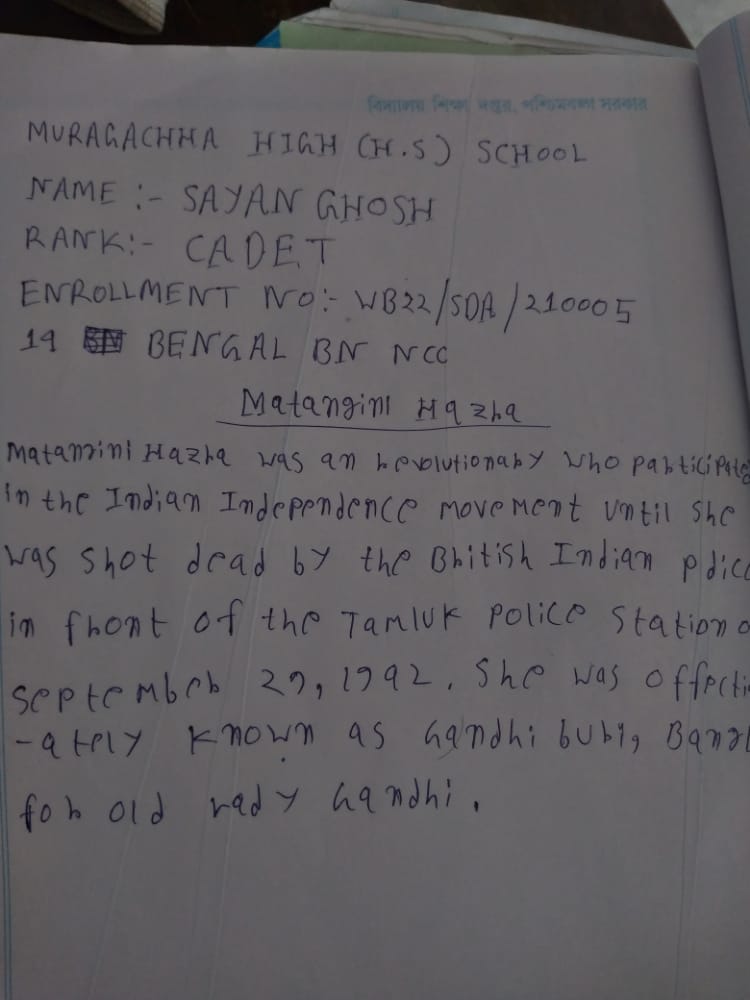 বিদ্যালয় শিক্ষা দপ্তর, পশ্চিমবঙ্গ সরকার
MURAGACHHA HIGH (H.S) SCHOOL
NAME :- SAYAN GHOSH
RANK:- CADET
ENROLLMENT NO:- WB22/SDA/210005
19 BENGAL BN NCC
Matangini Hazra
Matangini Hazra was an revolutionary who participate
in the Indian Independence movement until she
was shot dead by the British Indian police
in front of the Tamluk police station o
September 29, 1942. She was offecti
-ately known as Gandhi buri, Bangl
for old lady Gandhi.